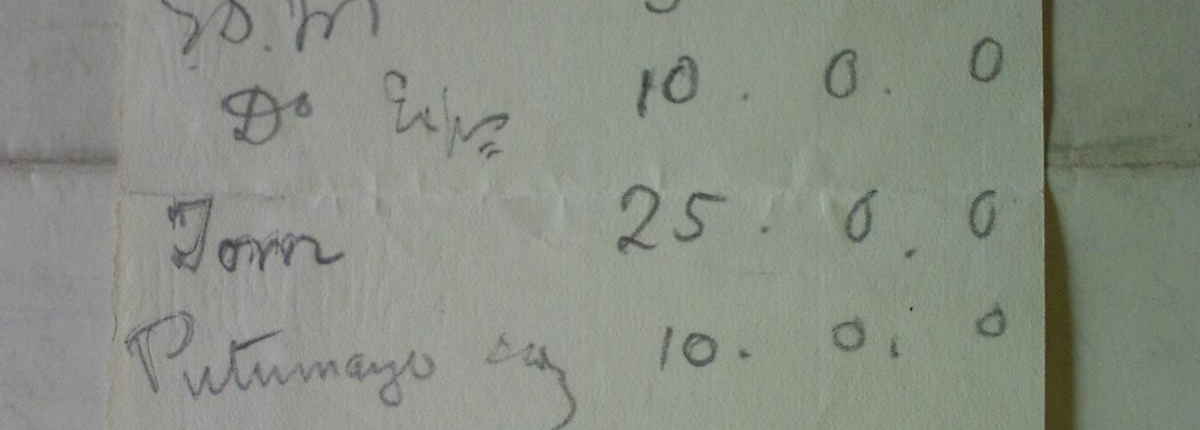 Do Exps 10. 0. 0
Tom 25. 0. 0
Putumayo 10. 0. 0